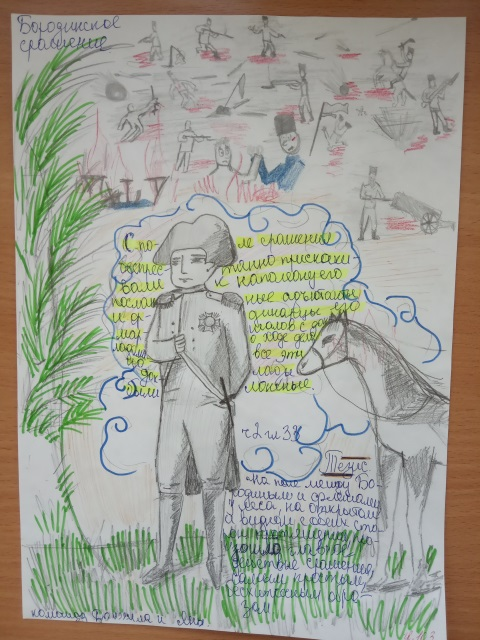 Бородинское
сражение
С по- ле сражения
беспрес- танно прискаки-
вали к наполеону его
послан ные адъютанты
и ор- динарцы его
мар- шалов с док
о ходе дела
но все эти
до- клады
были ложные.
ч 2 гл 33
Тезис
На поле между Бо-
родиным и флешами
у леса, на открытом
и видном с обеих сто
рон
главное
действие сражения,
самым простым,
бесхитростным обра-
зом.
команда и